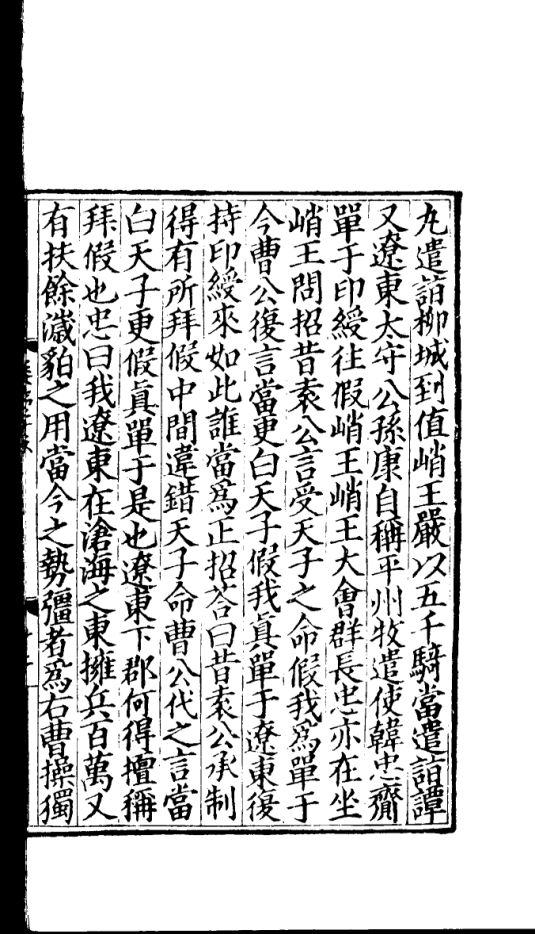 丸遣詣柳城到值峭王嚴以五千騎當遣詣譚
又遼東太守公孫康自稱平州牧遣使韓忠齎
單于印綬往假峭王峭王大會群長忠亦在坐
峭王問招昔袁公言受天子之命假我爲單于
今曹公復言當更白天子假我真單于遼東復
持印綬來如此誰當爲正招荅曰昔袁公承制
得有所拜假中間違錯天子命曹公代之言當
白天子更假真單于是也遼東下郡何得擅稱
拜假也忠曰我遼東在滄海之東擁兵百萬又
有扶餘濊貊之用當今之勢彊者爲右曹操獨